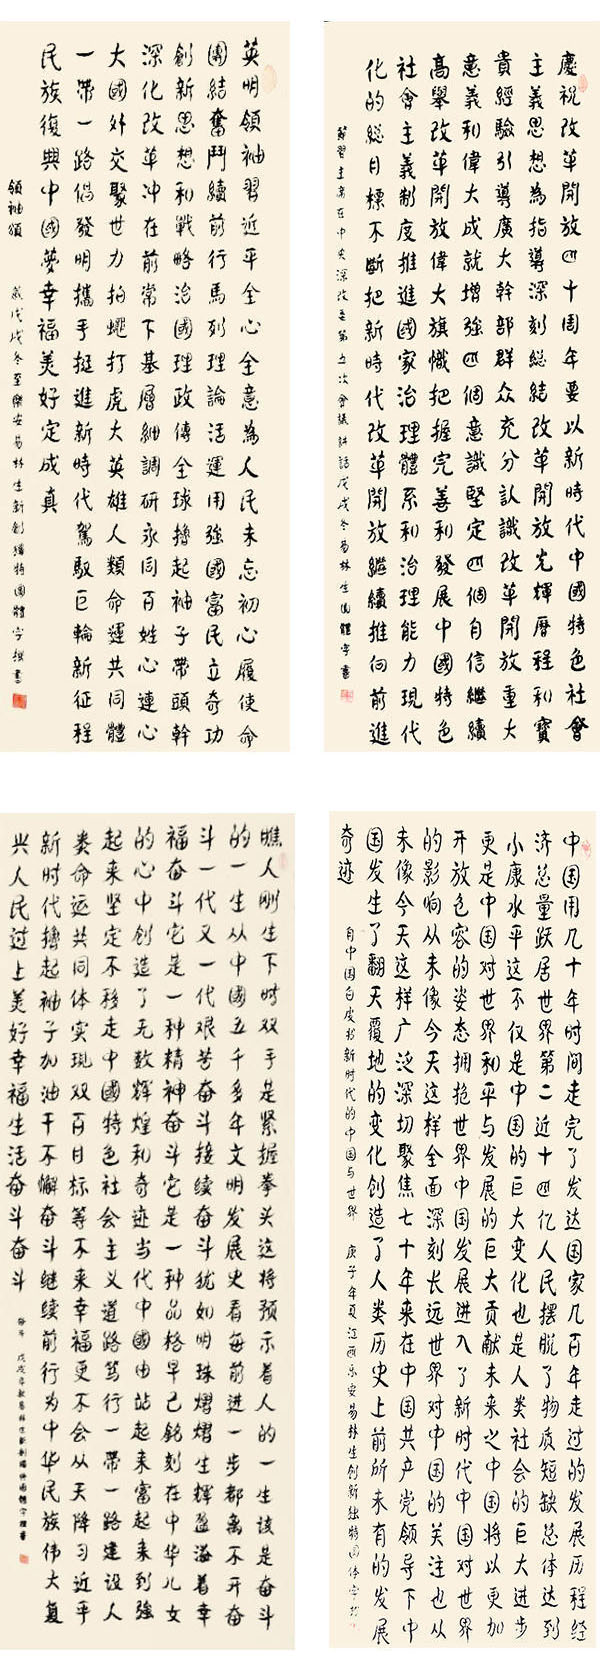 英明領袖習近平全心全意為人民未忘初心履使命
團結奮鬥續前行馬列理論活運用強國富民立奇功
創新思想和戰略治國理政傳全球擼起袖子帶頭幹
深化改革冲在前常下基層細調研永同百姓心連心
大國外交聚世力拍蠅打虎大英雄人類命運共同體
一帶一路倡發明攜手挺進新時代駕馭巨輪新征程
民族復興中國夢幸福美好定成真
領袖頌 歲戊戌冬至樂安易林生新創獨特園體字撰書
慶祝改革開放四十周年要以新時代中國特色社會
主義思想為指導深刻総結改革開放光輝曆程和寶
貴經驗引導廣大幹部群众充分认識改革開放重大
意義和偉大成就增強四個意識堅定四個自信繼續
高舉改革開放偉大旗幟把握完善和發展中國特色
社會主義制度推進國家治理體系和治理能力現代
化的総目標不斷把新時代改革開放繼續推向前進
習主席在中央深改委第五次會議講話戊戌冬易林生園體字書
瞧人刚生下时双手是紧握拳头这将预示着人的一生该是奋斗
的一生从中國五千多年文明发展史看每前进一步都离不开奋
斗一代又一代艰苦奋斗接续奋斗犹如明珠熠熠生辉盈溢着幸
福奋斗它是一种精神奋斗它是一种品格早已铭刻在中华儿女
的心中创造了无数辉煌和奇迹当代中國由站起来富起来到強
起来坚定不移走中國特色社会主义道路笃行一带一路建设人
类命运共同体实现双百目标等不来幸福更不会从天降习近平
新时代擼起袖子加油干不懈奋斗继续前行为中华民族伟大复
兴人民过上美好幸福生活奋斗奋斗
戊戌年秋易林生新創獨特園體字撰書
中国用几十年时间走完了发达国家几百年走过的发展历程经
济总量跃居世界第二近十四亿人民摆脱了物质短缺总体达到
小康水平这不仅是中国的巨大变化也是人类社会的巨大进步
更是中国对世界和平与发展的巨大贡献未来之中国将以更加
开放包容的姿态拥抱世界中国发展进入了新时代中国对世界
的影响从未像今天这样全面深刻长远世界对中国的关注也从
未像今天这样广泛深切聚焦七十年来在中国共产党领导下中
国发生了翻天覆地的变化创造了人类历史上前所未有的发展
奇迹
自中国白皮书新时代的中国与世界 庚子年夏江西乐安易林生创新独特园体字